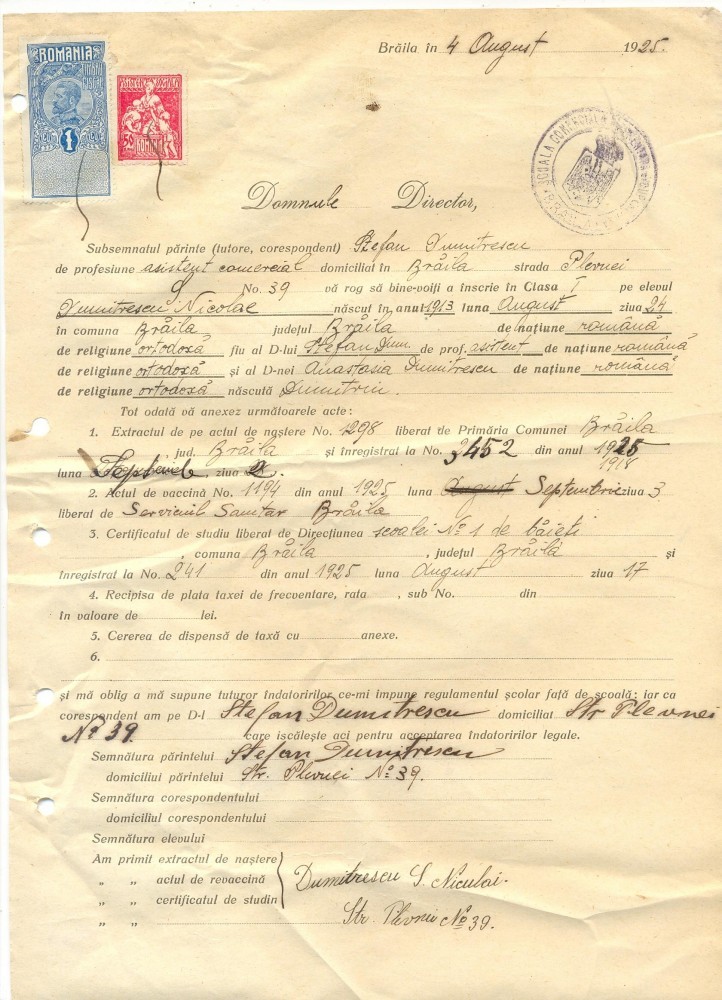 Brăila în 4 August 1925.
ROMANIA
TIMBRU FISCAL
1
50
ROMÂNIA
BRĂILA
Domnule Director,
Subsemnatul părinte (tutore, corespondent) Stefan Dumitrescu
de profesiune asistent comercial domiciliat în Brăila strada Plevnei
No. 39 vă rog să bine-voiți a înscrie în Clasa I pe elevul
Dumitrescu Nicolae născut în anul 1913 luna August ziua 24
în comuna Brăila județul Brăila de națiune română
de religiune ortodoxă fiu al D-lui Stefan Dum. de prof. asistent de națiune română
de religiune ortodoxă și al D-nei Anastasia Dumitrescu de națiune română
de religiune ortodoxă născută Dumitriu.
Tot odată vă anexez următoarele acte:
1. Extractul de pe actul de naștere No. 1298 liberat de Primăria Comunei Brăila
, jud. Brăila și înregistrat la No. 3452 din anul 1925
1918
luna Septemb ziua 2.
2. Actul de vaccină No. 1194 din anul 1925 luna August Septembrie ziua 3
liberat de Serviciul Sanitar Brăila
3. Certificatul de studiu liberat de Direcțiunea scoalei No 1 de băieți
, comuna Brăila , județul Brăila și
înregistrat la No. 241 din anul 1925 luna August ziua 17
4. Recipisa de plata taxei de frecventare, rata , sub No. din
în valoare de lei.
5. Cererea de dispensă de taxă cu anexe.
6.
și mă oblig a mă supune tuturor îndatoririlor ce-mi impune regulamentul școlar față de școală: iar ca
corespondent am pe D-l Stefan Dumitrescu domiciliat Str Plevnei
No 39. care iscălește aci pentru acceptarea îndatoririlor legale.
Semnătura părintelui Stefan Dumitrescu
domiciliul părintelui Str. Plevnei No: 39.
Semnătura corespondentului
domiciliul corespondentului
Semnătura elevului
Am primit extractul de naștere
„ „ actul de revaccină Dumitrescu S. Niculai.
„ „ certificatul de studin
„ „ Str. Plevnei No 39.